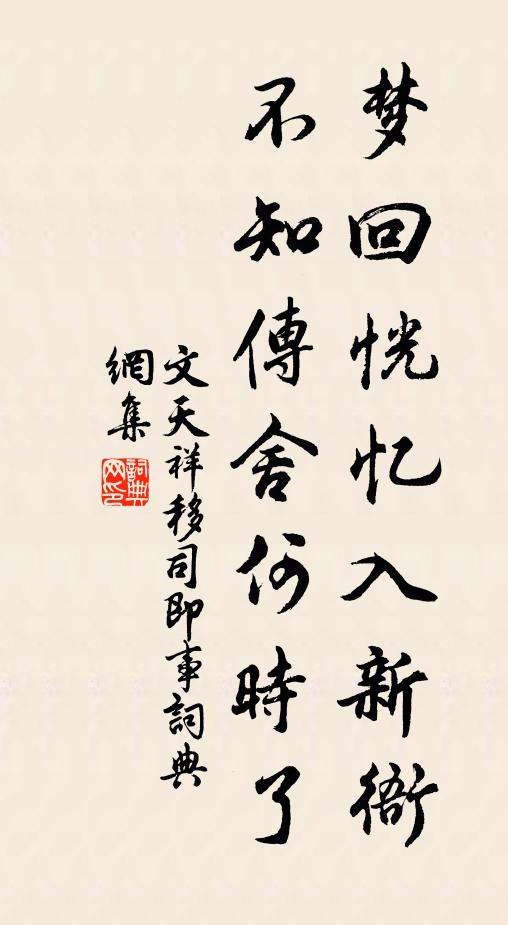 梦回恍忆入新衙
不知傳舍何時了
文天祥移司即事詞典
網集
詞典网印